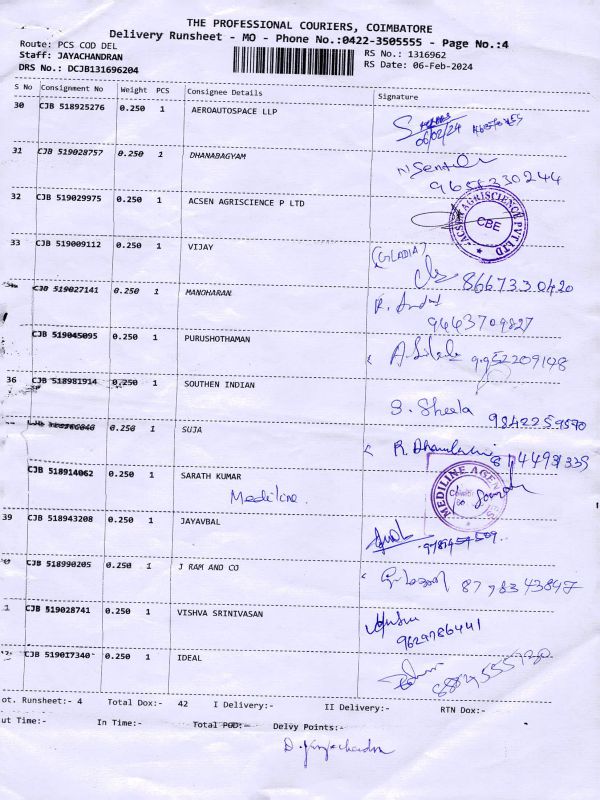 THE PROFESSIONAL COURIERS, COIMBATORE
Delivery Runsheet - MO - Phone No.:0422-3505555 - Page No.:4
Route: PCS COD DEL
Staff: JAYACHANDRAN
DRS No.: DCJB131696204
RS No.: 1316962
RS Date: 06-Feb-2024
S No Consignment No Weight PCS Consignee Details Signature
30 CJB 518925276 0.250 1 AEROAUTOSPACE LLP
06/02/24
31 CJB 519028757 0.250 1 DHANABAGYAM
32 CJB 519029975 0.250 1 ACSEN AGRISCIENCE P LTD
ACSEN AGRISCIENCE PVT LTD
CBE
33 CJB 519009112 0.250 1 VIJAY
8667330420
CJB 519027141 0.250 1 MANOHARAN
9443709827
CJB 519045095 0.250 1 PURUSHOTHAMAN
9952209148
36 CJB 518981914 0.250 1 SOUTHEN INDIAN
S. Sheela
0.250 1 SUJA
CJB 518914062 0.250 1 SARATH KUMAR
Mediline
MEDILINE AGENCIES
39 CJB 518943208 0.250 1 JAYAVBAL
CJB 518990205 0.250 1 J RAM AND CO
8778343847
1 CJB 519028741 0.250 1 VISHVA SRINIVASAN
9629786441
CJB 519017340 0.250 1 IDEAL
ot. Runsheet:- 4 Total Dox:- 42 I Delivery:- II Delivery:- RTN Dox:-
ut Time:- In Time:- Total POD:- Delvy Points:-